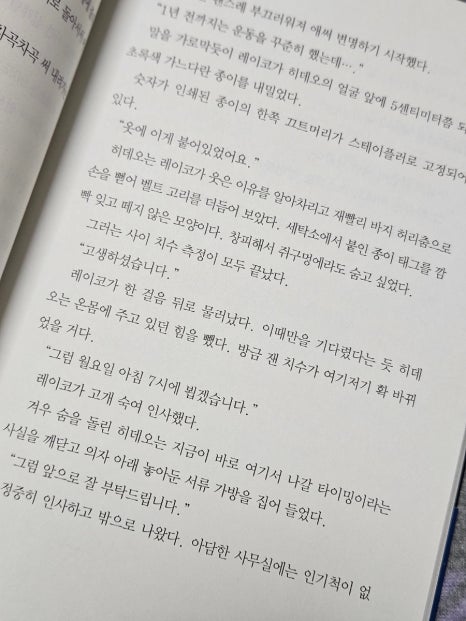 괜스레 부끄러워져 애써 변명하기 시작했다.
"1년 전까지는 운동을 꾸준히 했는데…."
말을 가로막듯이 레이코가 히데오의 얼굴 앞에 5센티미터쯤 되
초록색 가느다란 종이를 내밀었다.
숫자가 인쇄된 종이의 한쪽 끄트머리가 스테이플러로 고정되어
있다.
"옷에 이게 붙어있었어요."
히데오는 레이코가 웃은 이유를 알아차리고 재빨리 바지 허리춤으로
손을 뻗어 벨트 고리를 더듬어 보았다. 세탁소에서 붙인 종이 태그를 깜
빡 잊고 떼지 않은 모양이다. 창피해서 쥐구멍에라도 숨고 싶었다.
그러는 사이 치수 측정이 모두 끝났다.
"고생하셨습니다."
레이코가 한 걸음 뒤로 물러났다. 이때만을 기다렸다는 듯 히데
오는 온몸에 주고 있던 힘을 뺐다. 방금 잰 치수가 여기저기 확 바뀌
었을 거다.
"그럼 월요일 아침 7시에 뵙겠습니다."
레이코가 고개 숙여 인사했다.
겨우 숨을 돌린 히데오는 지금이 바로 여기서 나갈 타이밍이라는
사실을 깨닫고 의자 아래 놓아둔 서류 가방을 집어 들었다.
"그럼 앞으로 잘 부탁드립니다."
정중히 인사하고 밖으로 나왔다. 아담한 사무실에는 인기척이 없